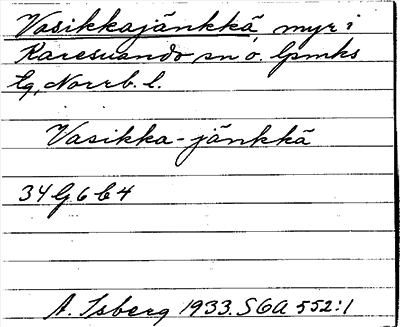 Vasikkajänkkä, myr i
Karesuando sn o. lpmks
lg, Norrb. l.
Vasikka-jänkkä
34 G 6 b 4
A. Isberg 1933. SOA 552:1